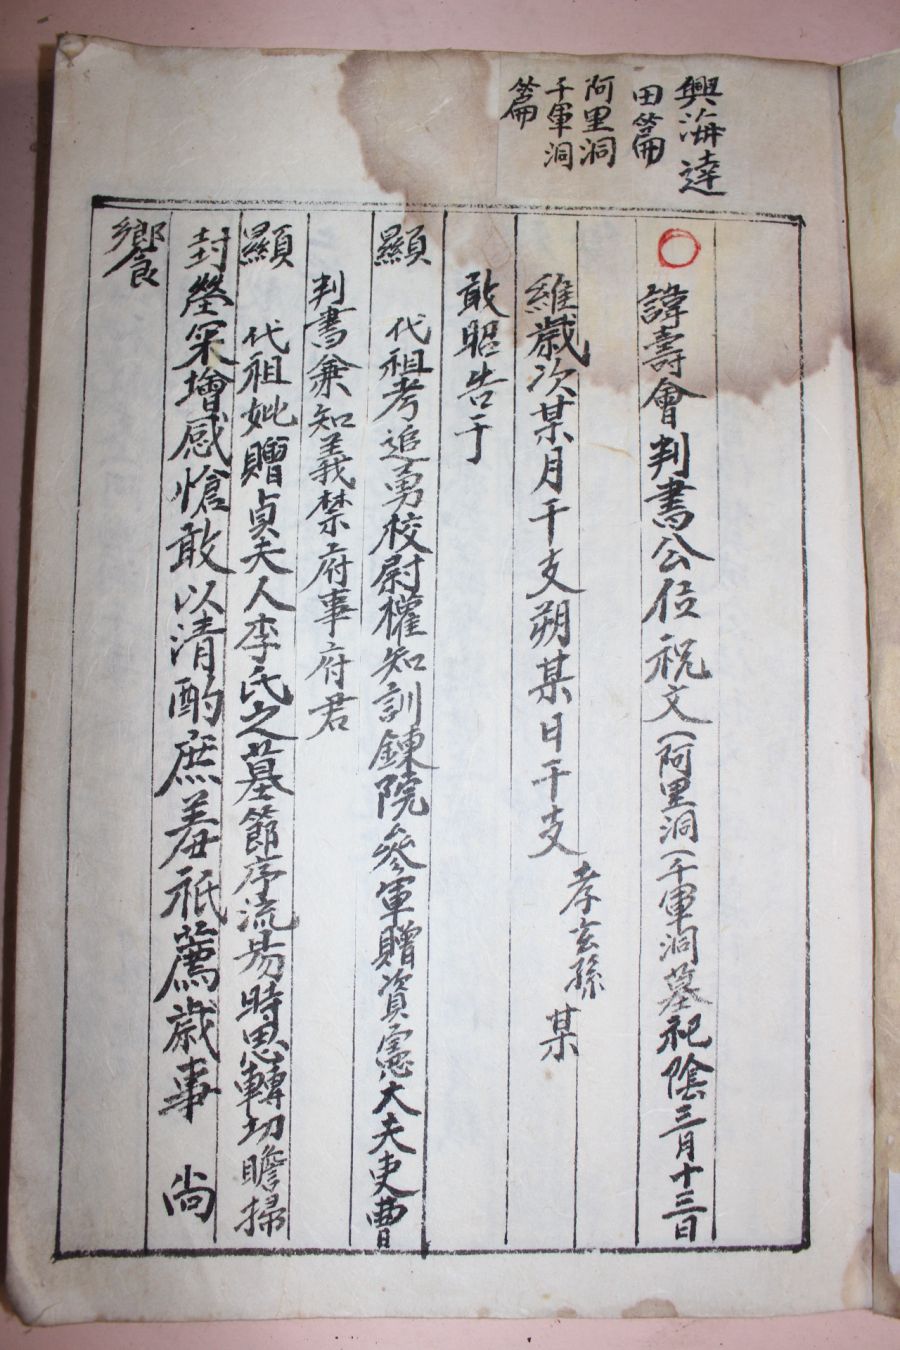 興海達
田篇
阿里洞
千軍洞
篇
○諱壽會判書公位祝文(阿里洞(千軍洞墓祀陰三月十三日
維歲次某月干支朔某日干支 孝玄孫 某
敢昭告于
顯 代祖考追勇校尉權知訓鍊院參軍贈資憲大夫吏曹
判書兼知義禁府事府君
顯 代祖妣贈貞夫人李氏之墓節序流易時思轉切瞻掃
封塋罙增感愴敢以清酌庶羞祇薦歲事 尚
饗